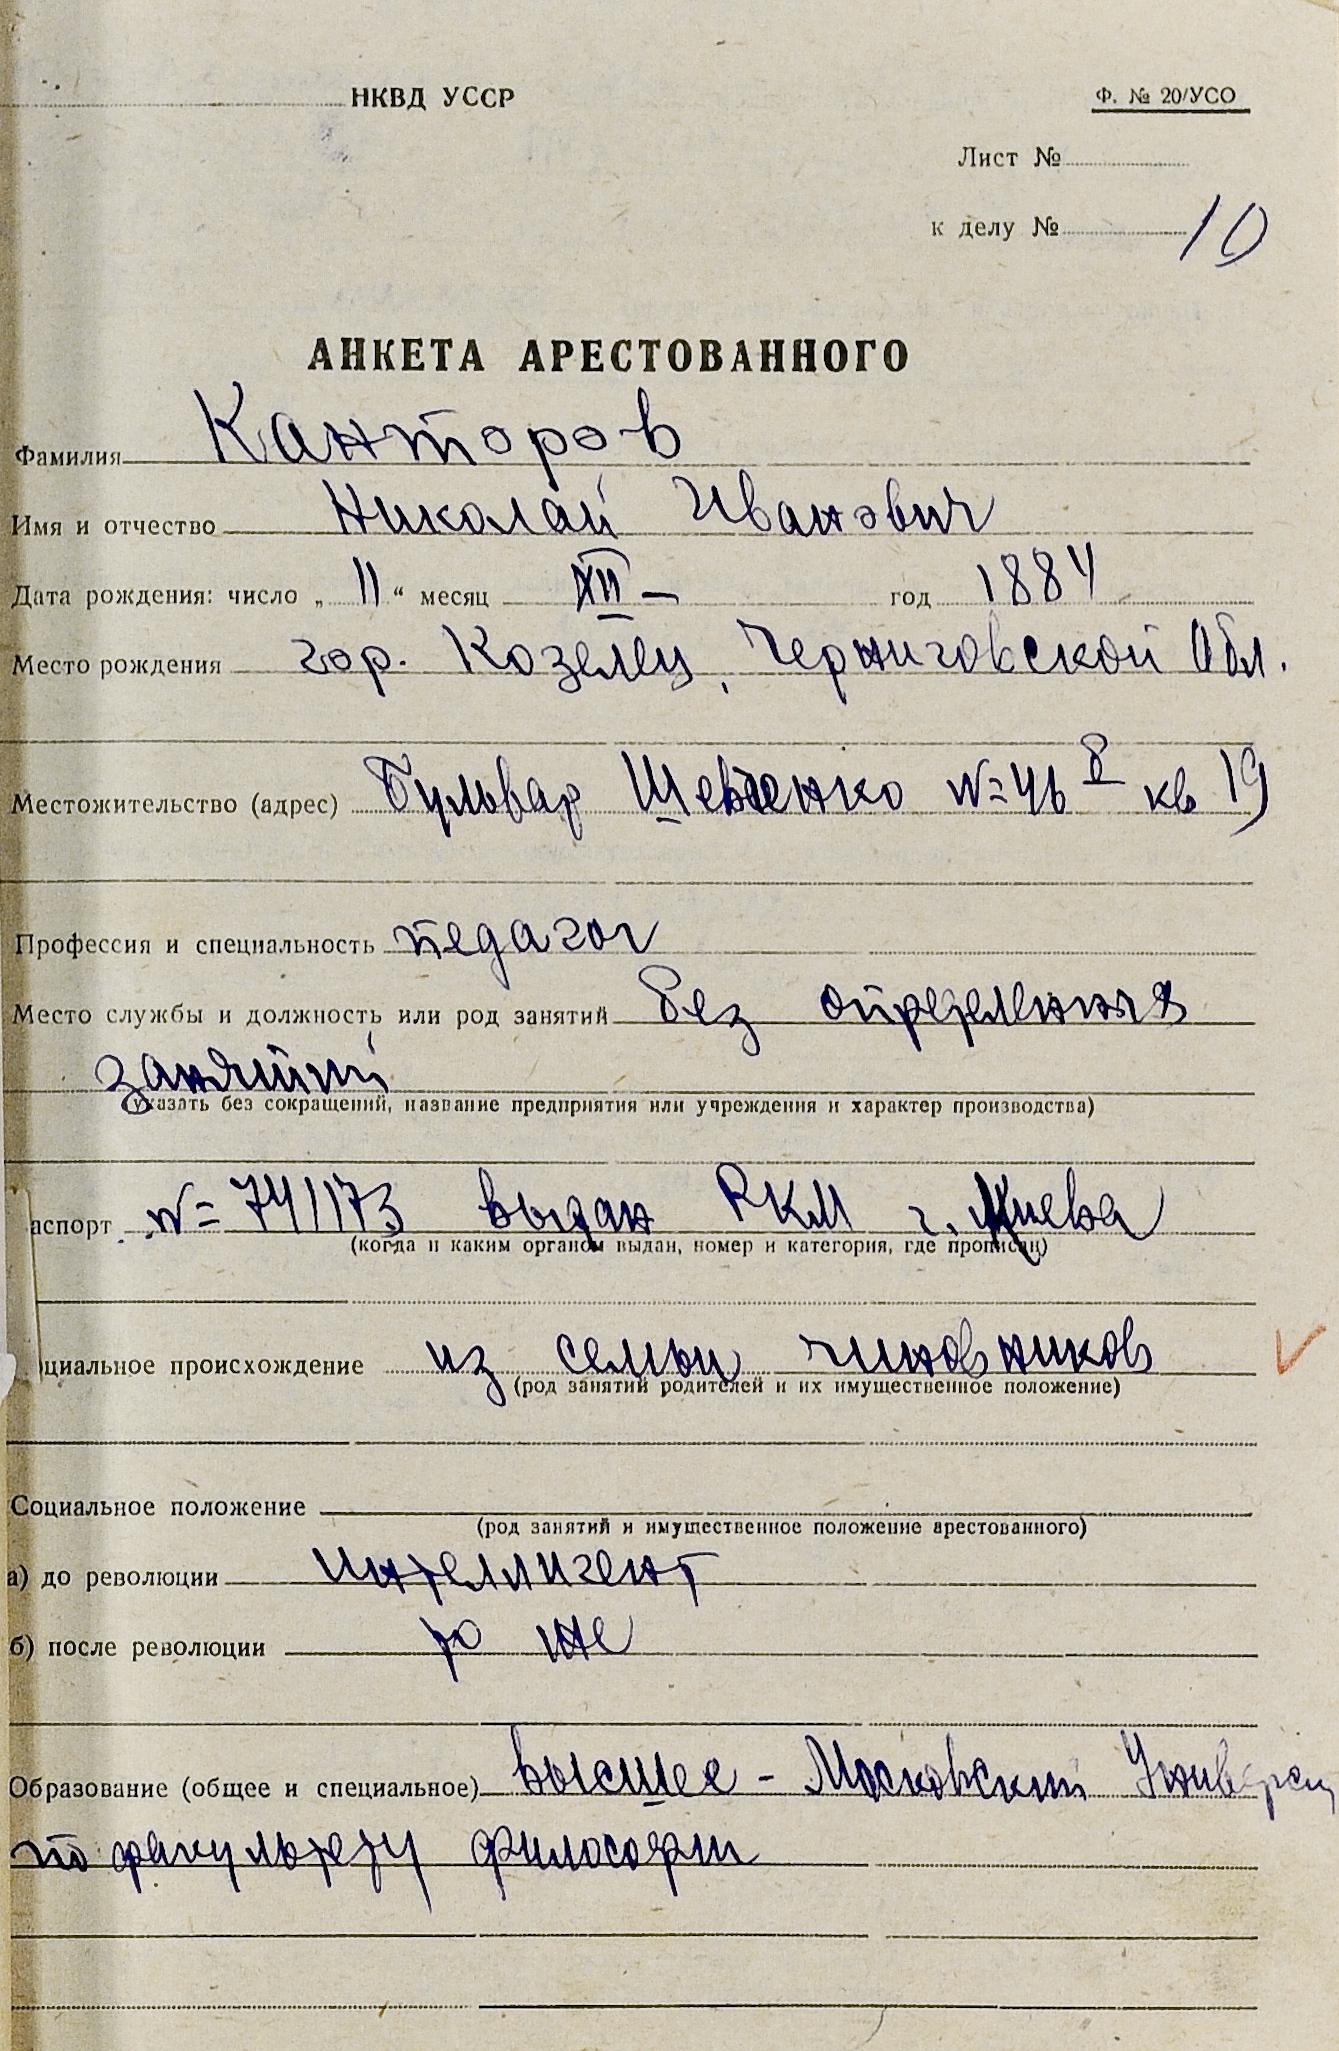 НКВД УССР
Ф. № 20/УСО
Лист №
к делу № 10
АНКЕТА АРЕСТОВАННОГО
Фамилия Канторов
Имя и отчество Николай Иванович
Дата рождения: число „ 11 “ месяц XII – год 1884
Место рождения гор. Козелец, Черниговской Обл.
Местожительство (адрес) бульвар Шевченко №=46 кв 19
Профессия и специальность педагог
Место службы и должность или род занятий без определения
занятий
(указать без сокращений, название предприятия или учреждения и характер производства)
аспорт №= 741173 выдан РКМ г. Киева
(когда и каким органом выдан, номер и категория, где прописан)
циальное происхождение из семьи чиновников
(род занятий родителей и их имущественное положение)
Социальное положение
(род занятий и имущественное положение арестованного)
а) до революции интеллигент
б) после революции то же
Образование (общее и специальное) высшее – Московский Универси
по факультету философии